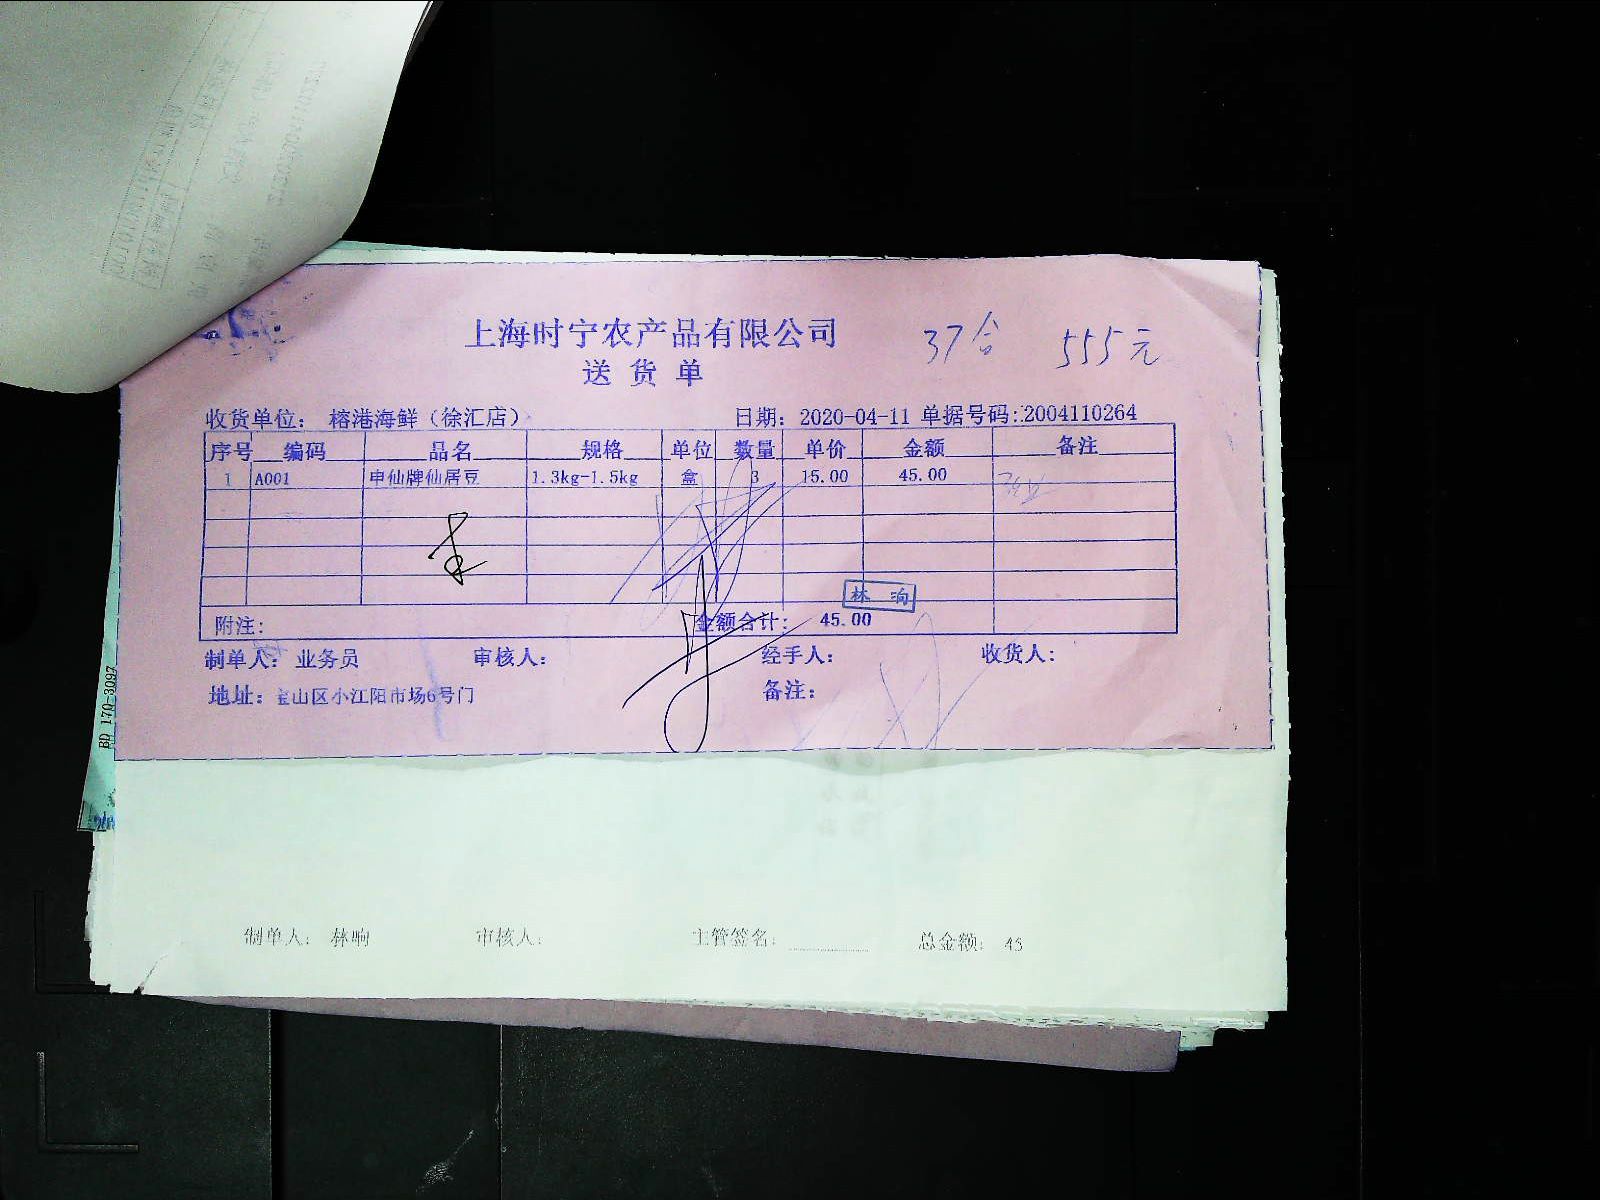 上海时宁农产品有限公司 37合 555元
送货单
收货单位: 榕港海鲜(徐汇店) 日期: 2020-04-11 单据号码:2004110264
序号 编码 品名 规格 单位 数量 单价 金额 备注
1 A001 申仙牌仙居豆 1.3kg-1.5kg 盒 3 15.00 45.00
林响
附注: 金额合计: 45.00
制单人: 业务员 审核人: 经手人: 收货人:
地址: 宝山区小江阳市场6号门 备注:
BD 170-3097
制单人: 林响 审核人: 主管签名: 总金额: 45